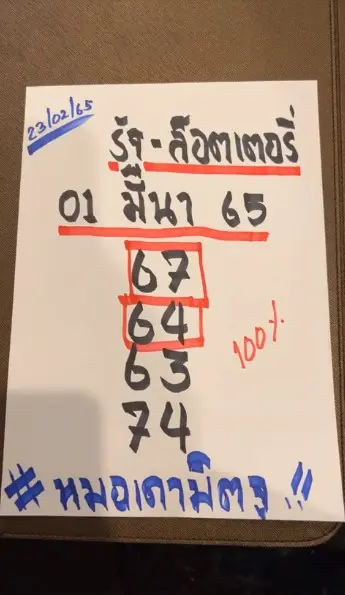 23/02/65
รัฐ - ล็อตเตอรี่
01 มีนา 65
67
64
63
74
100%
#หมอเดามิตจู !!